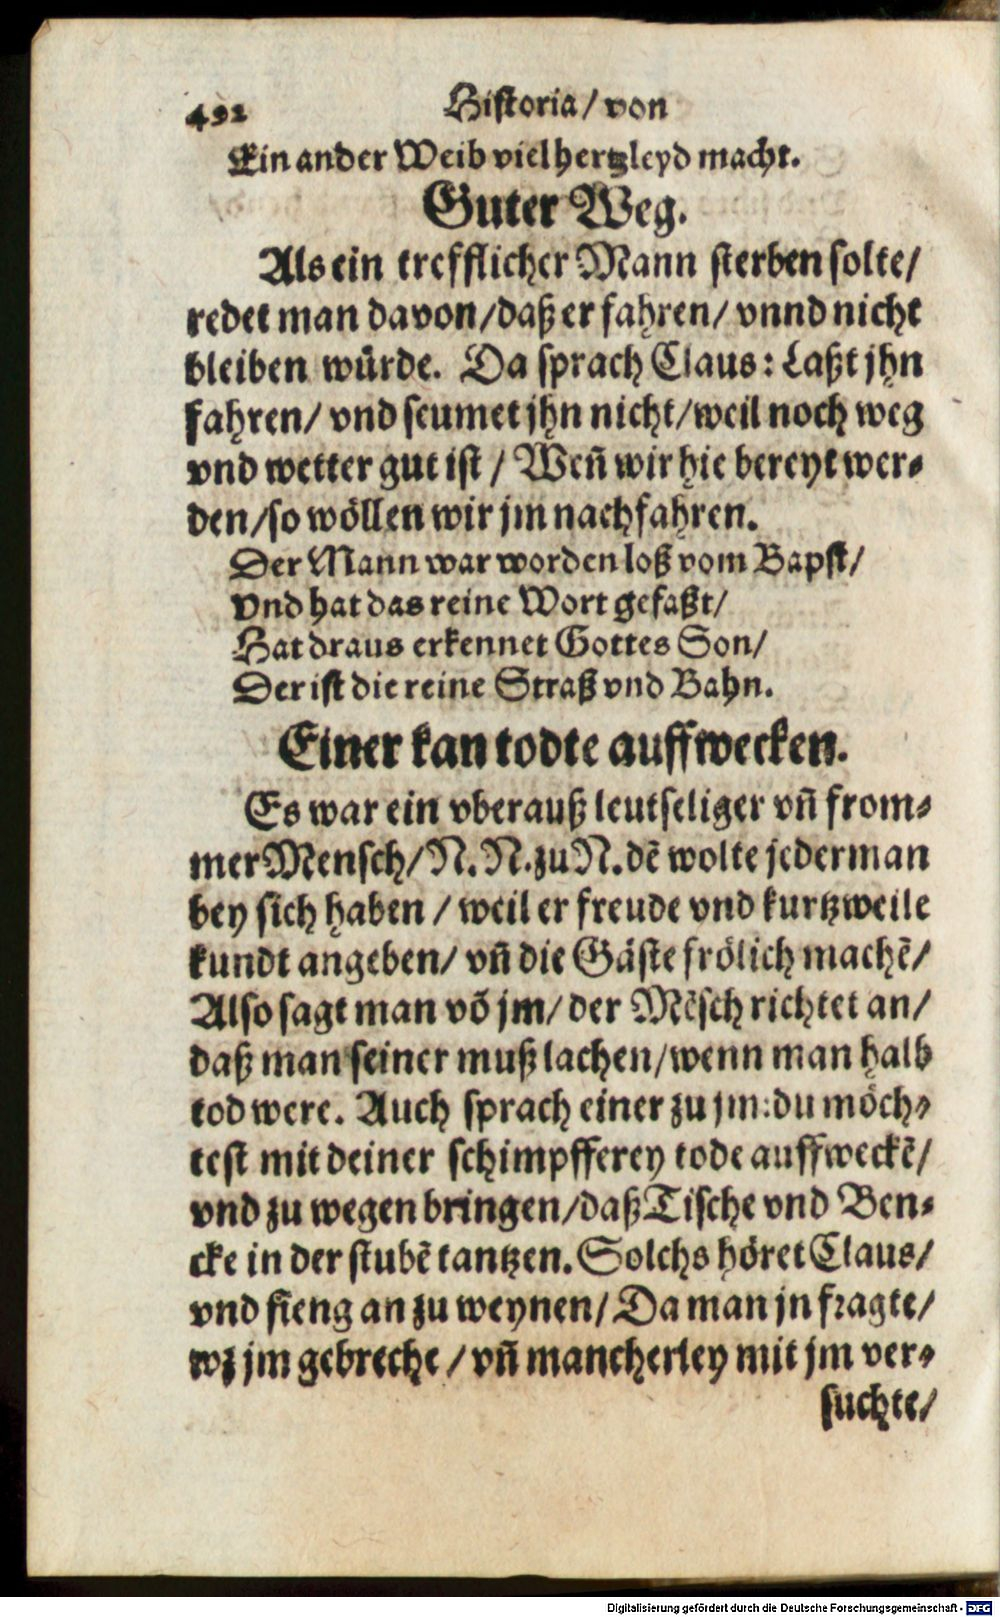 492 Historia/ von
Ein ander Weib viel hertzleyd macht.
Guter Weg.
Als ein trefflicher Mann sterben solte/
redet man davon/daß er fahren/ vnnd nicht
bleiben würde. Da sprach Claus: Laßt jhn
fahren/ vnd seumet jhn nicht/weil noch weg
vnd wetter gut ist / Weñ wir hie bereyt wer-
den/so wöllen wir jm nachfahren.
Der Mann war worden loß vom Bapst/
Vnd hat das reine Wort gefaßt/
Hat draus erkennet Gottes Son/
Der ist die reine Straß vnd Bahn.
Einer kan todte auffwecken.
Es war ein vberauß leutseliger vñ from-
mer Mensch/N.N.zu N.dẽ wolte jederman
bey sich haben / weil er freude vnd kurtzweile
kundt angeben/ vñ die Gäste frölich machẽ/
Also sagt man võ jm/ der Mẽsch richtet an/
daß man seiner muß lachen/wenn man halb
tod were. Auch sprach einer zu jm:du möch-
test mit deiner schimpfferey tode auffweckẽ/
vnd zu wegen bringen/daß Tische vnd Ben-
cke in der stubẽ tantzen. Solchs höret Claus/
vnd fieng an zu weynen/ Da man jn fragte/
wz jm gebreche / vñ mancherley mit jm ver-
suchte/
Digitalisierung gefördert durch die Deutsche Forschungsgemeinschaft - DFG